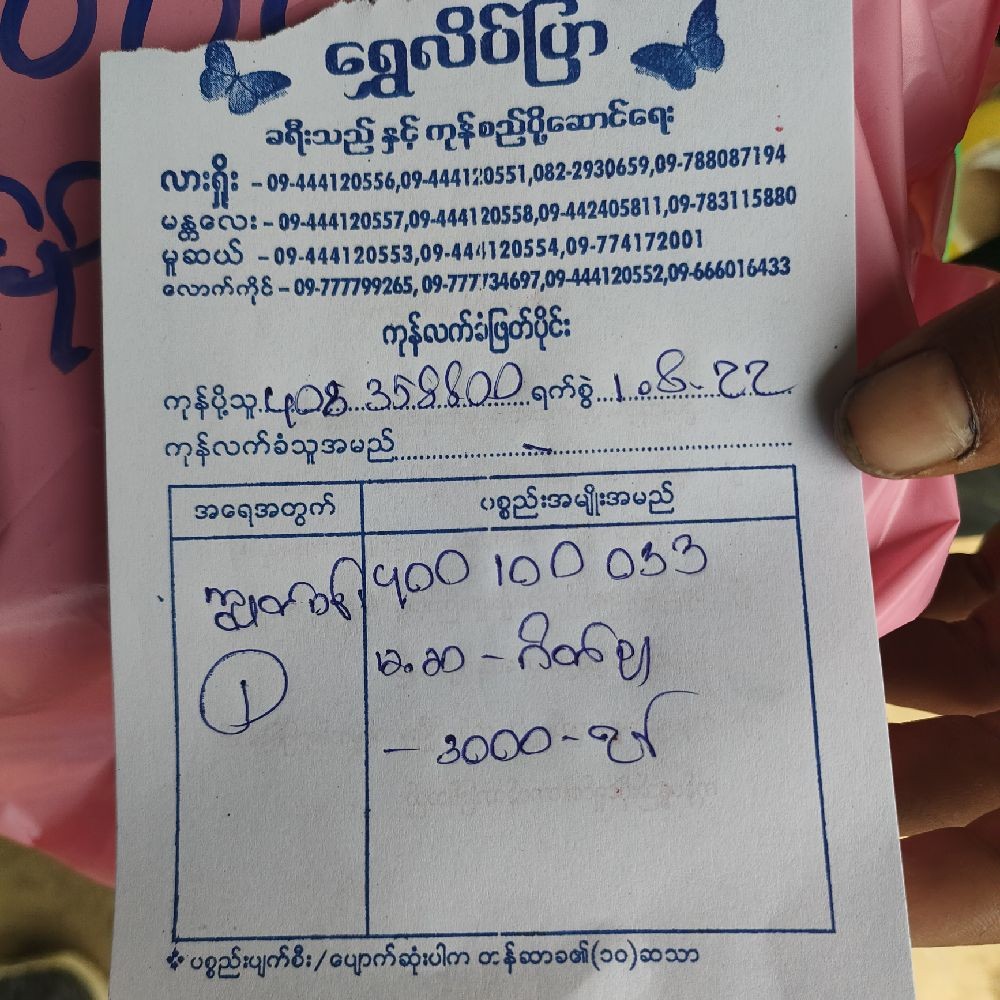 ရွှေလိပ်ပြာ
ခရီးသည် နှင့် ကုန်စည်ပို့ဆောင်ရေး
လားရှိုး - 09-444120556,09-444120551,082-2930659,09-788087194
မန္တလေး - 09-444120557,09-444120558,09-442405811,09-783115880
မူဆယ် - 09-444120553,09-444120554,09-774172001
လောက်ကိုင် - 09-777799265, 09-777734697,09-444120552,09-666016433
ကုန်လက်ခံဖြတ်ပိုင်း
ကုန်ပို့သူ 408 358800 ရက်စွဲ 1.8.22
ကုန်လက်ခံသူအမည်
အရေအတွက် ပစ္စည်းအမျိုးအမည်
400 100 033
မ.ဆ - ဂိတ်ချ
၁
- 3000 -
* ပစ္စည်းပျက်စီး/ပျောက်ဆုံးပါက တန်ဆာခ၏(၁၀)ဆသာ